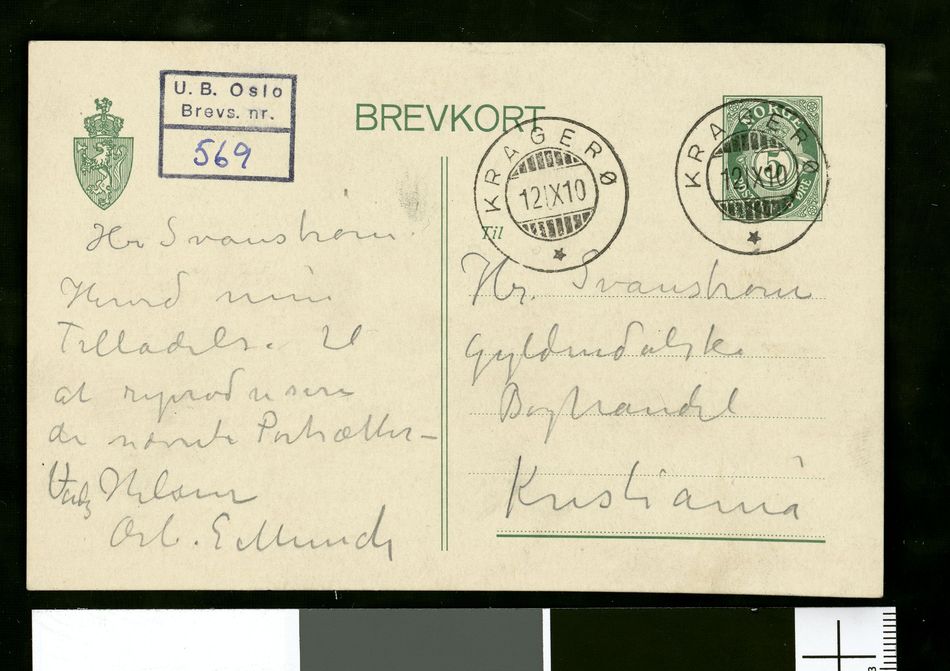 U. B. Oslo
Brevs. nr.
569
BREVKORT
KRAGERØ
12 IX 10
NORGE
5
KRAGERØ
12 IX 10
Til
Hr Svanstrøm.
min
Tilladelse til
at reproducere
de nævnte Portrætter –
Hilsen
Erb. E Munch
Hr. Svanstrøm
Gyldendalske
Boghandel
Kristiania